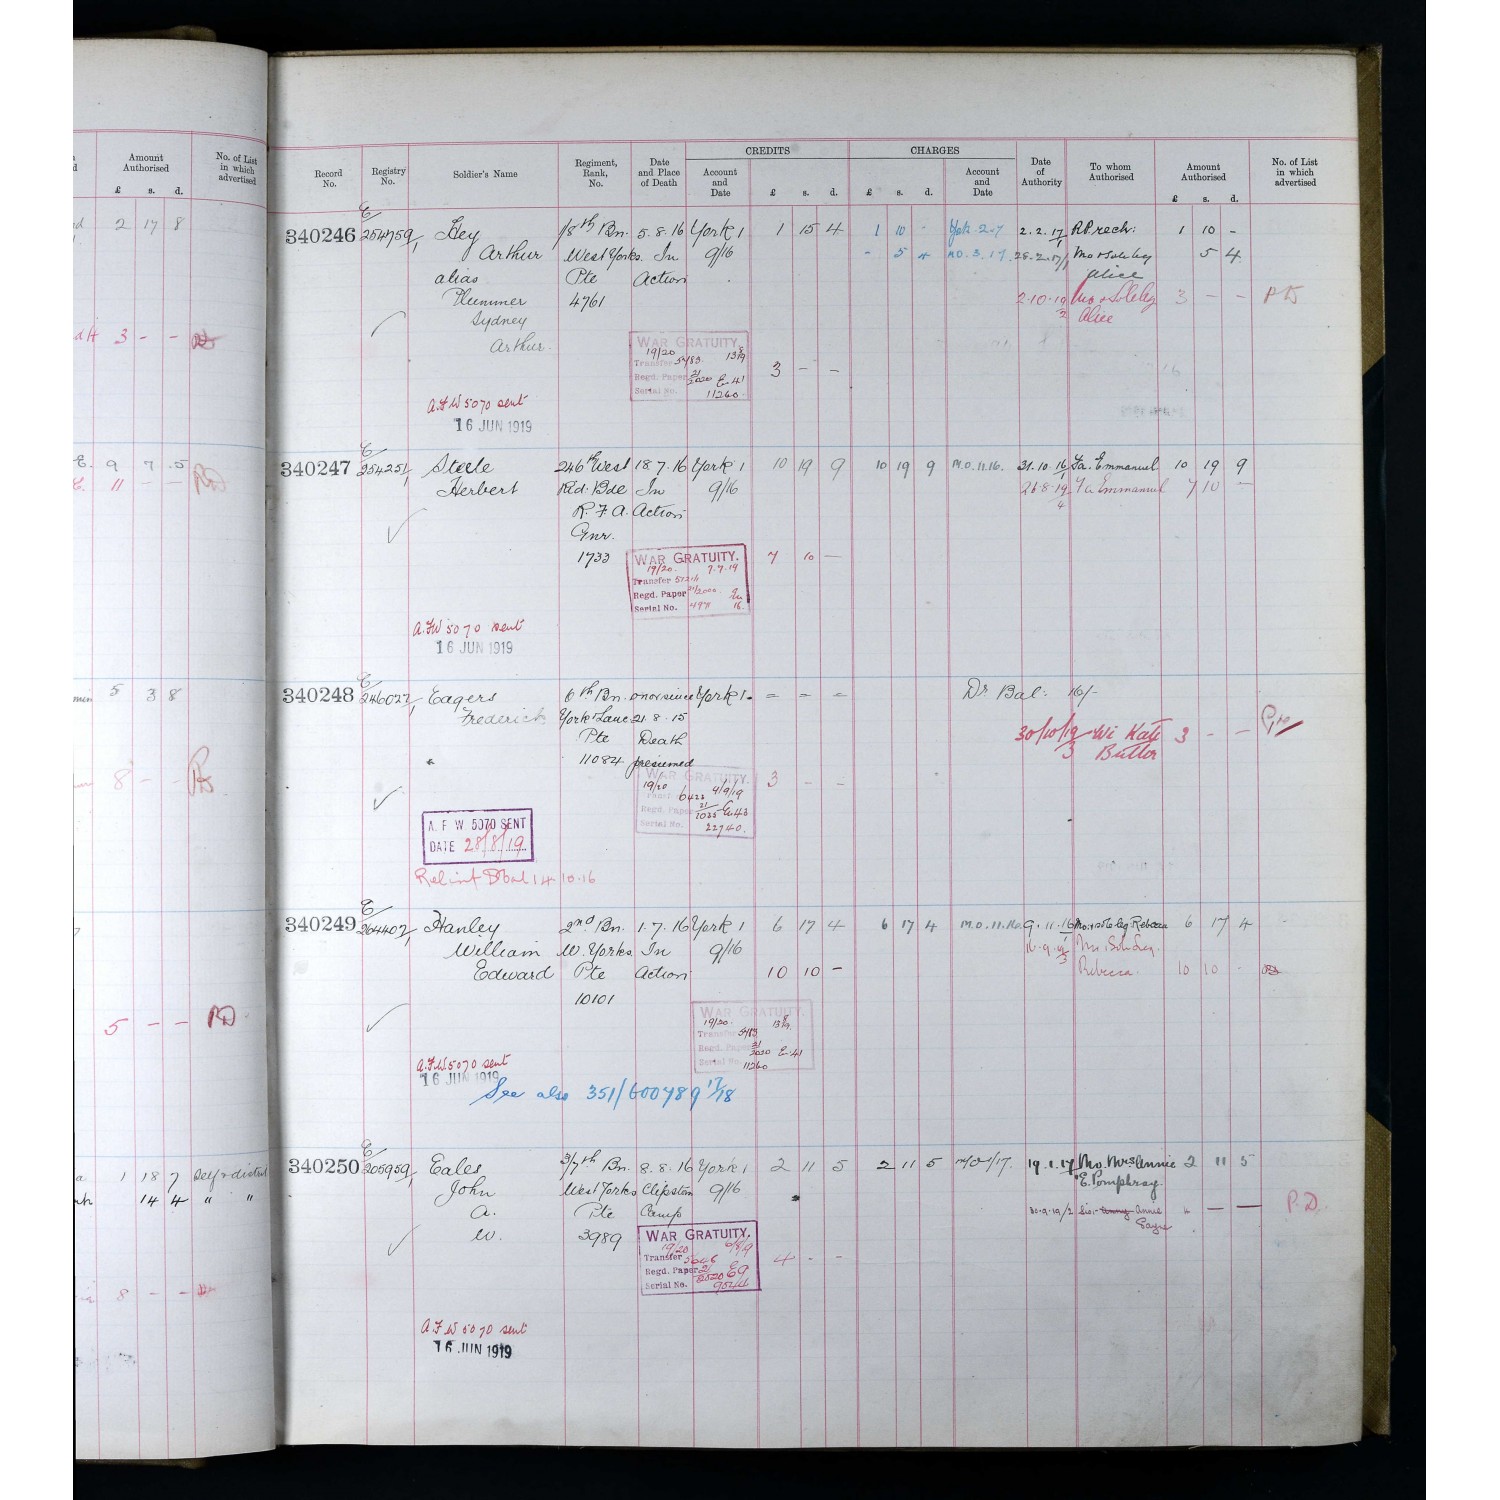 Amount Authorised
£ s. d.
No. of List in which advertised
2 17 8
3 - -
9 7 5
11 - -
5 3 8
8 - -
5 - - PD
1 18 7 Self & distant
14 4 " "
8 - -
Record No.
Registry No.
Soldier's Name
Regiment, Rank, No.
Date and Place of Death
CREDITS
Account and Date
£ s. d.
CHARGES
£ s. d.
Account and Date
Date of Authority
To whom Authorised
Amount Authorised
£ s. d.
No. of List in which advertised
340246 E/254759/1 Hey 1/8th Bn. 5.8.16 York 1 1 15 4 1 10 - York 2.17 2.2.17 RP rech: 1 10 -
Arthur West Yorks. In 9/16 - 5 4 MO.3.17. 28.2.17/1 Mo & Sole leg 5 4
alias Pte Action Alice
Plummer 4761 2.10.19/2 Mo & Sole leg 3 - - PD
Sydney Alice
Arthur.
WAR GRATUITY.
19/20 13/8/9
Transfer 5483
Regd. Paper 21/2020 E.41
Serial No. 11260.
3 - -
A.F.W 5070 sent
16 JUN 1919
340247 E/254251/1 Steele 246th West 18.7.16 York 1 10 19 9 10 19 9 M.O.11.16. 31.10.16/1 Fa. Emmanuel 10 19 9
Herbert Rid. Bde In 9/16 26.8.19/4 Fa Emmanuel 7 10 -
R.F.A. Action
Gnr.
1733
WAR GRATUITY.
19/20. 7.7.19
Transfer
Regd. Paper 21/2000
Serial No. 4971 16.
7 10 -
A.F.W 5070 sent
16 JUN 1919
340248 E/246027/1 Eagers 6th Bn. on or since York 1. = = = Dr Bal: 16/-
Frederick York & Lanc 21.8.15
Pte Death 30/10/19/3 Wi Kate 3 - -
11084. presumed Butter
WAR GRATUITY.
19/20 4/9/19
6423
Regd. Paper 21/1033 E.43
Serial No. 22740.
3 - -
A. F W 5070 SENT
DATE 28/8/19
14.10.16
340249 E/264407/1 Hanley 2nd Bn. 1.7.16 York 1 6 17 4 6 17 4 M.O.11.16. 9.11.16/1 Mo. & Sole leg Rebecca 6 17 4
William W. Yorks. In 9/16 16.9.19/3 Mo Sole Leg.
Edward Pte Action 10 10 - Rebecca. 10 10 -
10101
WAR GRATUITY.
19/20. 13/8/9.
Transfer 5483
Regd. Paper 21/2020 E.41
Serial No. 11260
A.F.W.5070 sent
16 JUN 1919
See also 351/600789 17/18
340250 E/205959/1 Eales 3/7th Bn. 8.8.16 York 1 2 11 5 2 11 5 19.1.17/1 Mo. Mrs Annie 2 11 5
John West Yorks Clipstone 9/16 E. Pomphray.
A. Pte Camp 30.9.19/2 Sis:- Annie 4 - - P.D.
W. 3989 Eayre
WAR GRATUITY.
19/20 6/8/9
Transfer 5646
Regd. Paper 21/2020 E9
Serial No.
4 - -
A.F.W 5070 sent
16 JUN 1919